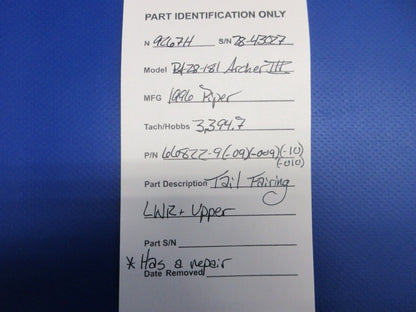 PART IDENTIFICATION ONLY
N 9267H S/N 28-43027
Model PA-28-181 Archer III
MFG 1996 Piper
Tach/Hobbs 3,394.7
P/N 66822-9(-09)(-009)(-10)
(-010)
Part Description Tail Fairing
LWR + Upper
Part S/N
* Has a repair
Date Removed